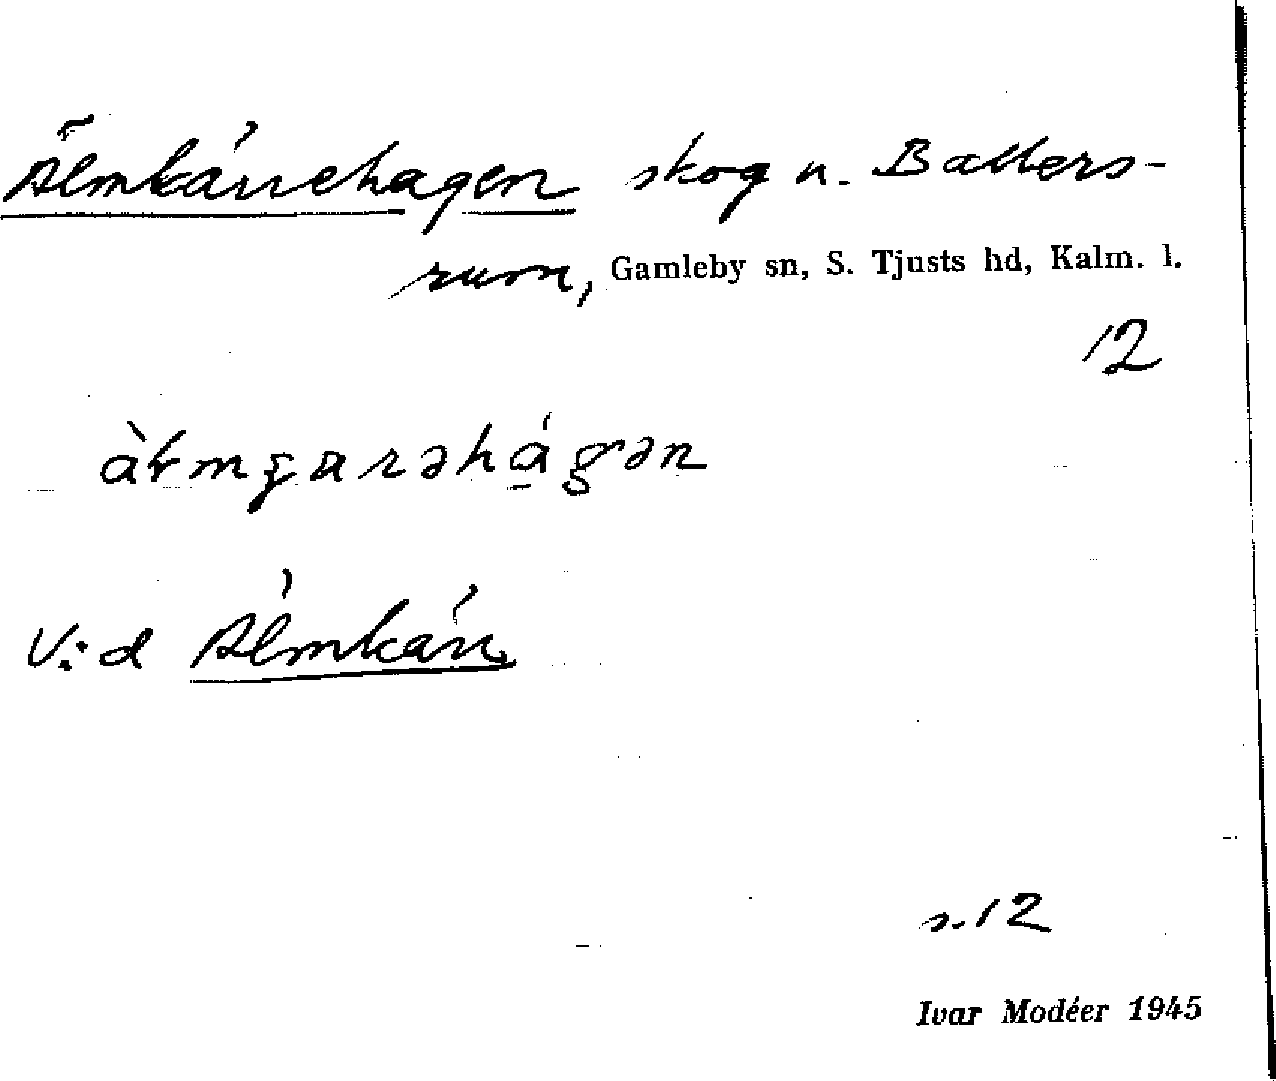 Älmkärrehagen skog u. Ballers-
rum, Gamleby sn, S. Tjusts hd, Kalm. l.
12
V:d Älmkärr
s.12
Ivar Modéer 1945